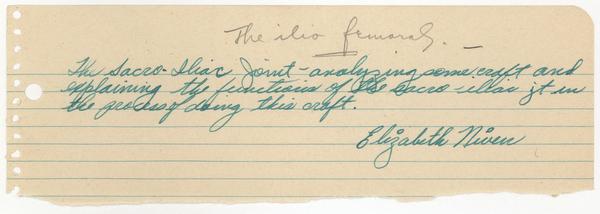 The ilio femoral. —
The Sacro-Iliac Joint - analyzing some craft and
explaining the functions of the sacro-iliac jt in
the process of doing this craft.
Elizabeth Niven